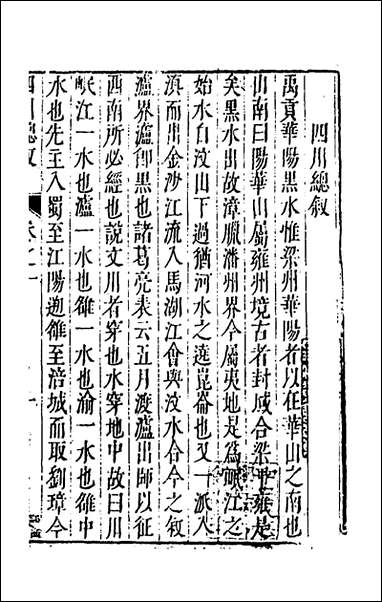 四川總叙
禹貢華陽黑水惟梁州華陽者以在華山之南也
山南曰陽華山屬雍州境古者封域合梁於雍是
矣黑水出故漳臘潘州界今屬夷地是爲岷江之
始水自汶山下過猶河水之遶崑崙也又一派入
滇而出金沙江流入馬湖江會與汶水合今之敘
瀘界瀘卽黑也諸葛亮表云五月渡瀘出師以征
西南所必經也說文川者穿也水穿地中故曰川
岷江一水也瀘一水也雒一水也渝一水也雒中
水也先主入蜀至江陽遡雒至涪城而取劉璋今
四川總叙 卷之一 一